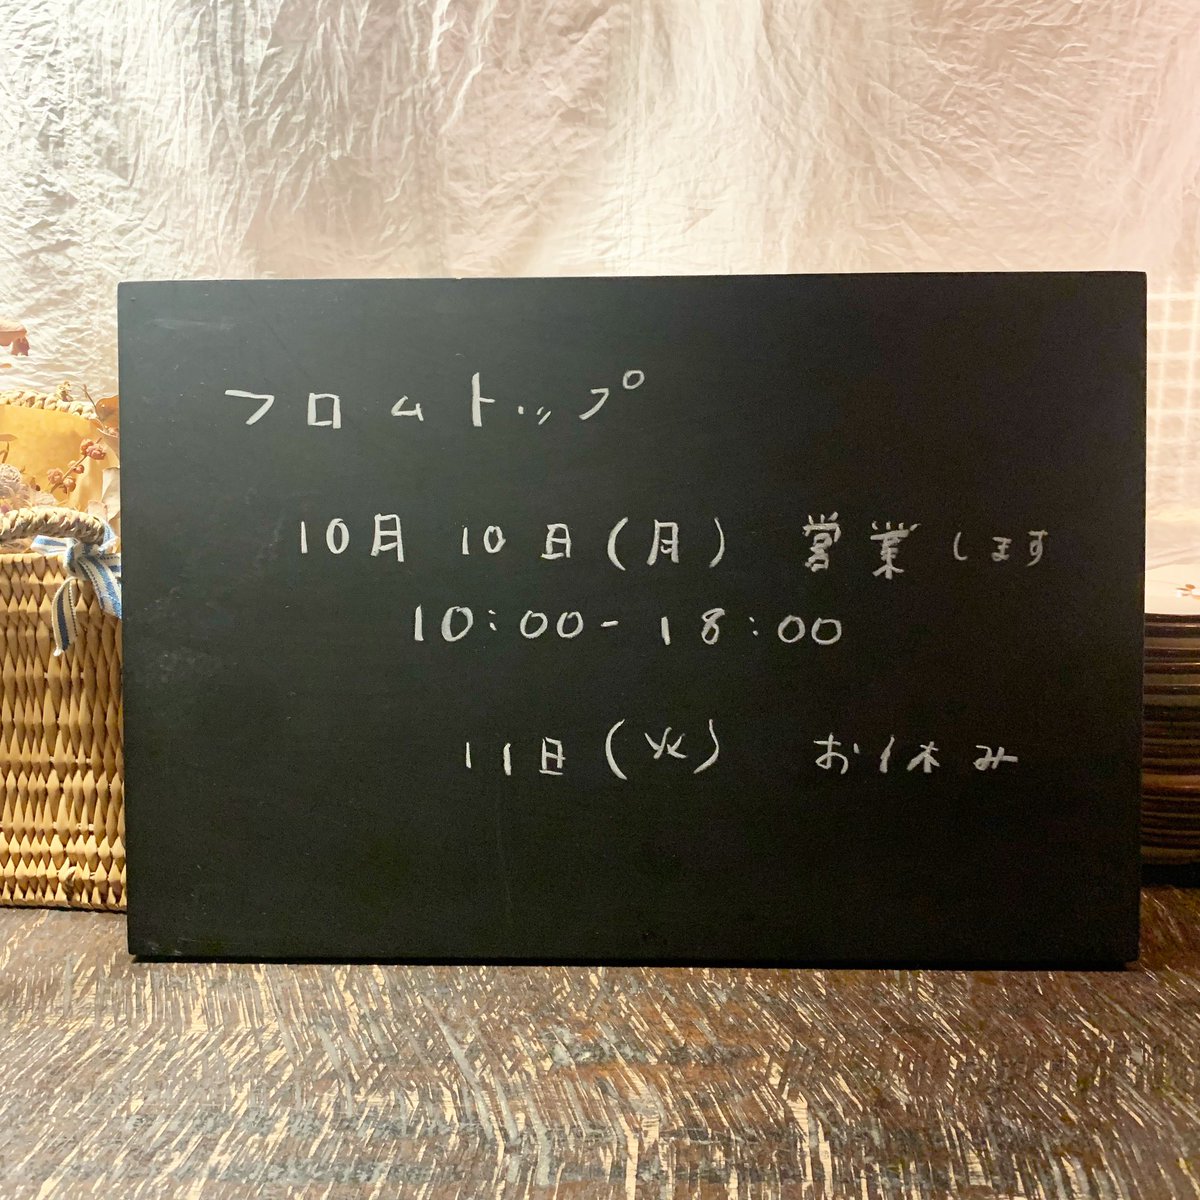 フロムトップ
10月 10日(月) 営業します
10:00-18:00
11日(火) お休み